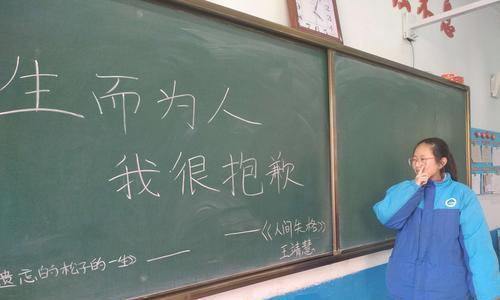 生而为人
我很抱歉
——《人间失格》
王靖慧
遗忘的松子的一生》——